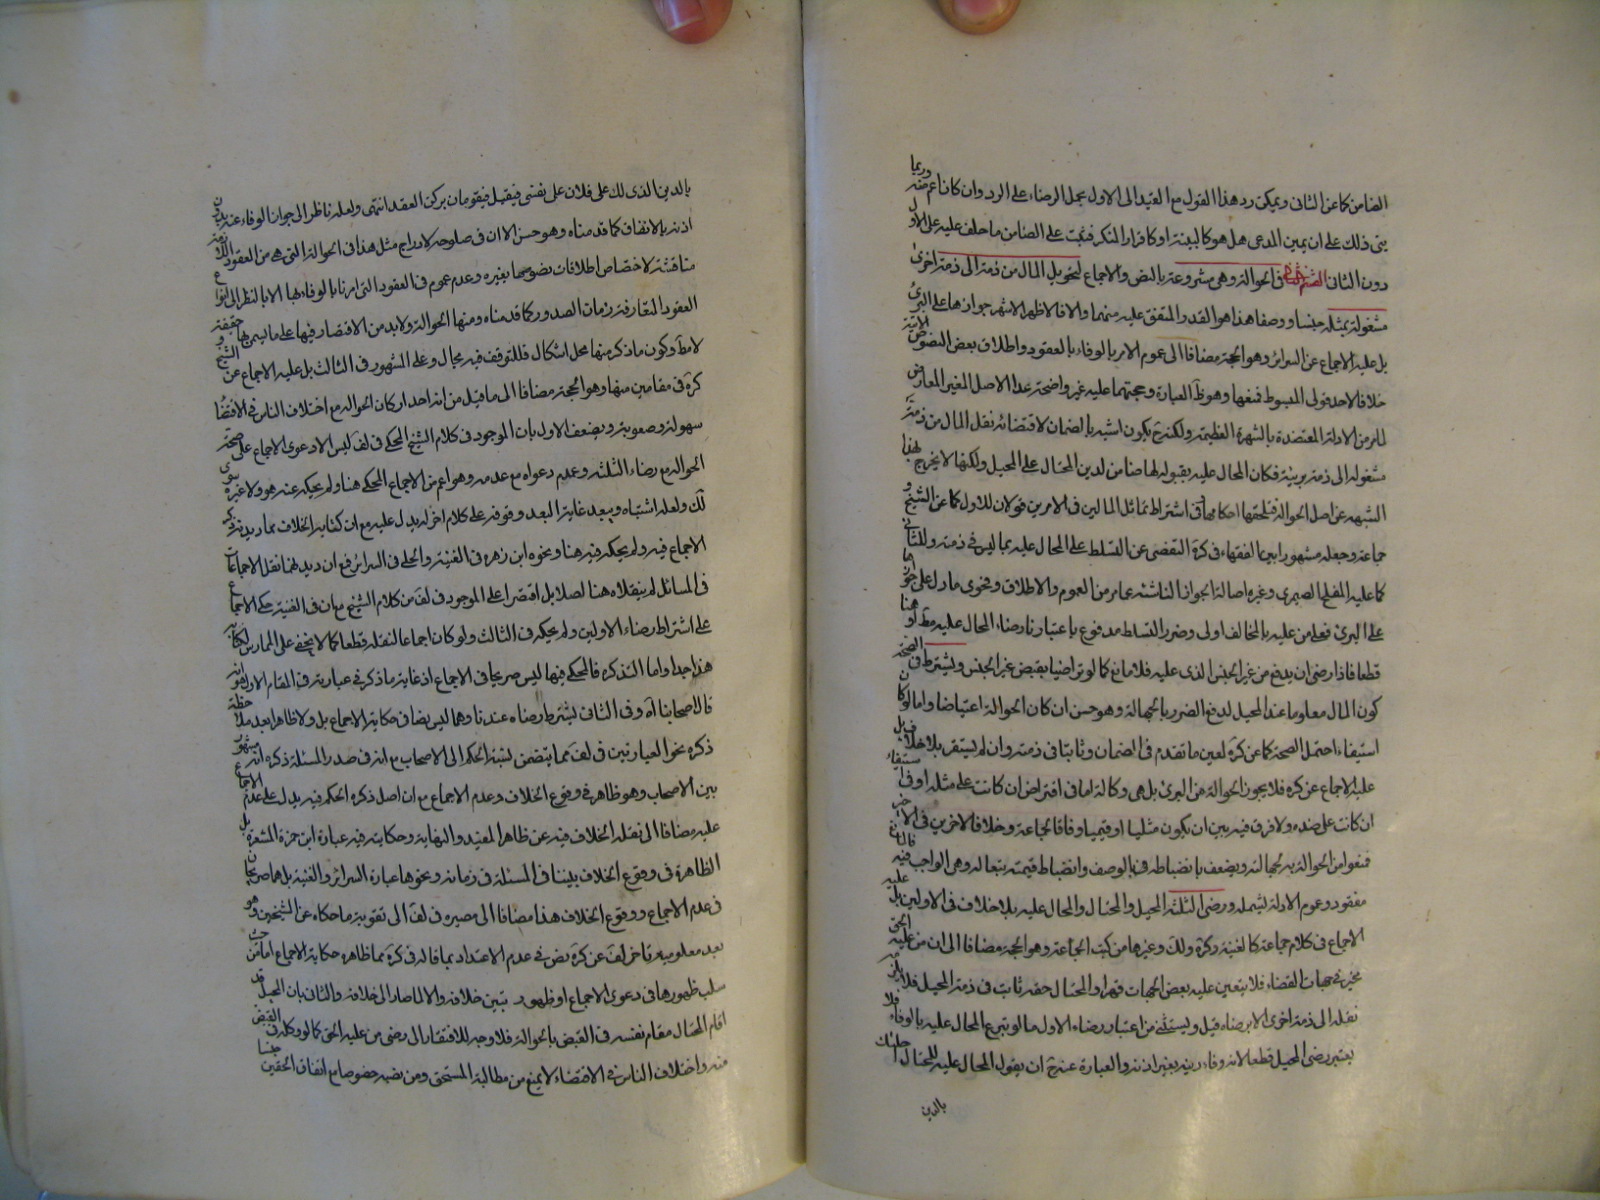 الضامن كما عن الثاني ويمكن رد هذا القول مع القيد الى الاول بحمل الرضاء على الرد وان كانا عم منه وربما
يبنى ذلك على ان يمين المدعى هل هو كالبينة او كاقرار المنكر فيثبت على الضامن ما حلف عليه على الاول
دون الثاني القسم الثاني في الحوالة وهى مشروعة بالنص والاجماع لتحويل المال من ذمة الى ذمة اخرى
مشغولة بمثله جنسا ووصفا هذا هو القدر المتفق عليه منهما والا فالاظهر الاشهر جوازها على البرئ
بل عليه الاجماع عن السرائر وهو الحجة مضافا الى عموم الامر بالوفاء بالعقود واطلاق بعض النصوص الاتية
خلافا لاحد قولى المبسوط فمنعها وهو ظ العبارة وحجتهما عليه غير واضحة عدا الاصل المغير المعارض
لما مر من الادلة المعتضدة بالشهرة العظيمة ولكن ح يكون اشبه بالضمان لاقتضائه نقل المال من ذمة
مشغولة الى ذمة بريئة فكان المحال عليه بقبوله لها ضامن لدين المحتال على المحيل ولكنها لا يخرج بهذا
الشبهه عن اصل الحوالة فتلحقها احكامها وفى اشتراط تماثل المالين فى الامرين قولان للاول كما عن الشيخ و
جماعة وجعله مشهورا بين الفقهاء فى كرة التفصى عن التسلط على المحال عليه بما ليس فى ذمته وللثانى
كما عليه المفلح الصيمرى وغيره اصالة الجواز الناشئة عما مر من العموم والاطلاق وفحوى ما دل على جوازها
على البرئ فعلى من عليه بالمخالف اولى وضرر التسلط مدفوع باعتبارنا رضاء المحال عليه مط او هنا
قطعا فاذا رضى ان يدفع من غير الجنس الذى عليه فلا مانع كما لو تراضيا بقبض غير الجنس ويشترط فى الصحة
كون المال معلوما عند المحيل لدفع الضرر بالجهالة وهو حسن ان كان الحوالة اعتياضا واما لو كان
استيفاء احتمل الصحة كما عن كرة لعين ما تقدم فى الضمان وثابتا فى ذمته وان لم يستقر بلا خلاف بل
عليه الاجماع عن كره فلا يجوز الحوالة من البرئ بل هى وكالة اما فى اقتراض ان كانت على مثله او فى استيفاء
ان كانت على ضده ولا فرق فيه بين ان يكون مثليا او قيميا وفاقا لجماعة وخلافا لاخرين فى الاخير
فمنعوا من الحوالة به لجهالته ويضعف بانضباطه بالوصف وانضباط قيمته تبعا له وهى الواجب فيه فالمانع
مفقود وعموم الادلة ليشمله ورضى الثلثة المحيل والمحتال والمحال عليه بلا خلاف فى الاولين بل عليه
الاجماع فى كلام جماعة كالغنية وكرة ولك وغيرها من كتب الجماعة وهو الحجة مضافا الى ان من عليه الحق
مخير فى جهات القضاء فلا يتعين عليه بعض الجهات قهرا والمحتال حقه ثابت فى ذمة المحيل فلا يلزمه
نقله الى ذمة اخرى الا برضاه قيل ويستثنى من اعتبار رضاء الاول ما لو تبرع المحال عليه بالوفاء فلا
يعتبر رضى المحيل قطعا لانه وفاء دينه بغير اذنه والعبارة عنه ح ان يقول المحال عليه للمحتال احلتك
بالدين
بالدين الذى لك على فلان على نفسى فيقبل فيقومان بركن العقد انتهى ولعله ناظر الى جواز الوفاء عنه بدون
اذنه بالاتفاق كما قدمناه وهو حسن الا ان فى صلوحه لادراج مثل هذا فى الحوالة التى هى من العقود اللازمة
مناقشة لاختصاص اطلاقات نصوصها بغيره وعدم عموم فى العقود التى امرنا بالوفاء بها الا بالنظر الى انواع
العقود المتعارفة زمان الصدور كما قدمناه ومنها الحوالة ولا بد من الاقتصار فيها على ما يسمى بها حقيقة و
لا مط وكون ما ذكر منها محل اشكال فللتوقف فيه مجال وعلى المشهور فى الثالث بل عليه الاجماع عن الشيخ
كرة فى مقامين منها وهو الحجة مضافا الى ما قيل من انه احد اركان الحوالة مع اختلاف الناس فى الاقتضاء
سهولة وصعوبة ويضعف الاول بان الموجود فى كلام الشيخ المحكى فى لف ليس الا دعوى الاجماع على صحة
الحوالة مع رضاء الثلثة وعدم دعواه مع عدمه وهو اعم من الاجماع المحكى هنا ولم يحكه عنه هو ولا غيره سوى
لك ولعله اشتباه ويبعد غاية البعد وقوفه على كلام اخر له يدل عليه مع ان كتابه الخلاف مما ديدنه ذكر
الاجماع فيه ولم يحكه فيه هنا ونحوه ابن زهره فى الغنية والحلى فى السرائر فمع ان ديدنهما نقل الاجماعات
فى المسائل لم ينقلاه هنا اصلا بل اقتصرا على الموجود فى لف من كلام الشيخ مع ان فى الغنية حكى الاجماع
على اشتراط رضاء الاولين ولم يحكه فى الثالث ولو كان اجماعا لنقله قطعا كما لا يخفى على الممارس لكتابه
هذا جدا واما التذكره فالمحكى فيها ليس صريحا فى الاجماع اذ غاية ما ذكر فى عبارته فى المقام الاول قوله
قال اصحابنا اه وفى الثانى ليشترط رضاه عندنا وهما ليس نصا فى حكاية الاجماع بل ولا ظاهرا بعد ملاحظة
ذكره نحو العبارتين فى لف مما يتضمن نسبة الحكم الى الاصحاب مع انه فى صدر المسئلة ذكره انه مشهور
بين الاصحاب وهو ظاهر فى وقوع الخلاف وعدم الاجماع مع ان اصل ذكره الحكم فيه يدل على عدم الاجماع
عليه مضافا الى نقله الخلاف فيه عن ظاهر المفيد والنهاية وحكايته فيه عبارة ابن حمزة المشعرة بل
الظاهرة فى وقوع الخلاف بيننا فى المسئلة فى زمانه ونحوها عبارة السرائر والغنية بل هما صريحان
فى عدم الاجماع ووقوع الخلاف هذا مضافا الى مصيره فى لف الى تقوية ما حكاه عن الشيخين وهو
بعد معلومية تاخر لف عن كرة نص فى عدم الاعتداد بما قاله فى كرة مما ظاهره حكاية الاجماع اما من حيث
سلب ظهورها فى دعوى الاجماع او ظهور تبين خلافه والا لما صار الى خلافه والثانى بان المحيل قد
اقام المحتال مقام نفسه فى القبض بالحوالة فلا وجه للافتقار الى رضى من عليه الحق كما لو وكله فى القبض
منه واختلاف الناس فى الاقتضاء لا يمنع من مطالبة المستحق ومن نصبه خصوصا مع اتفاق الحقين جنسا